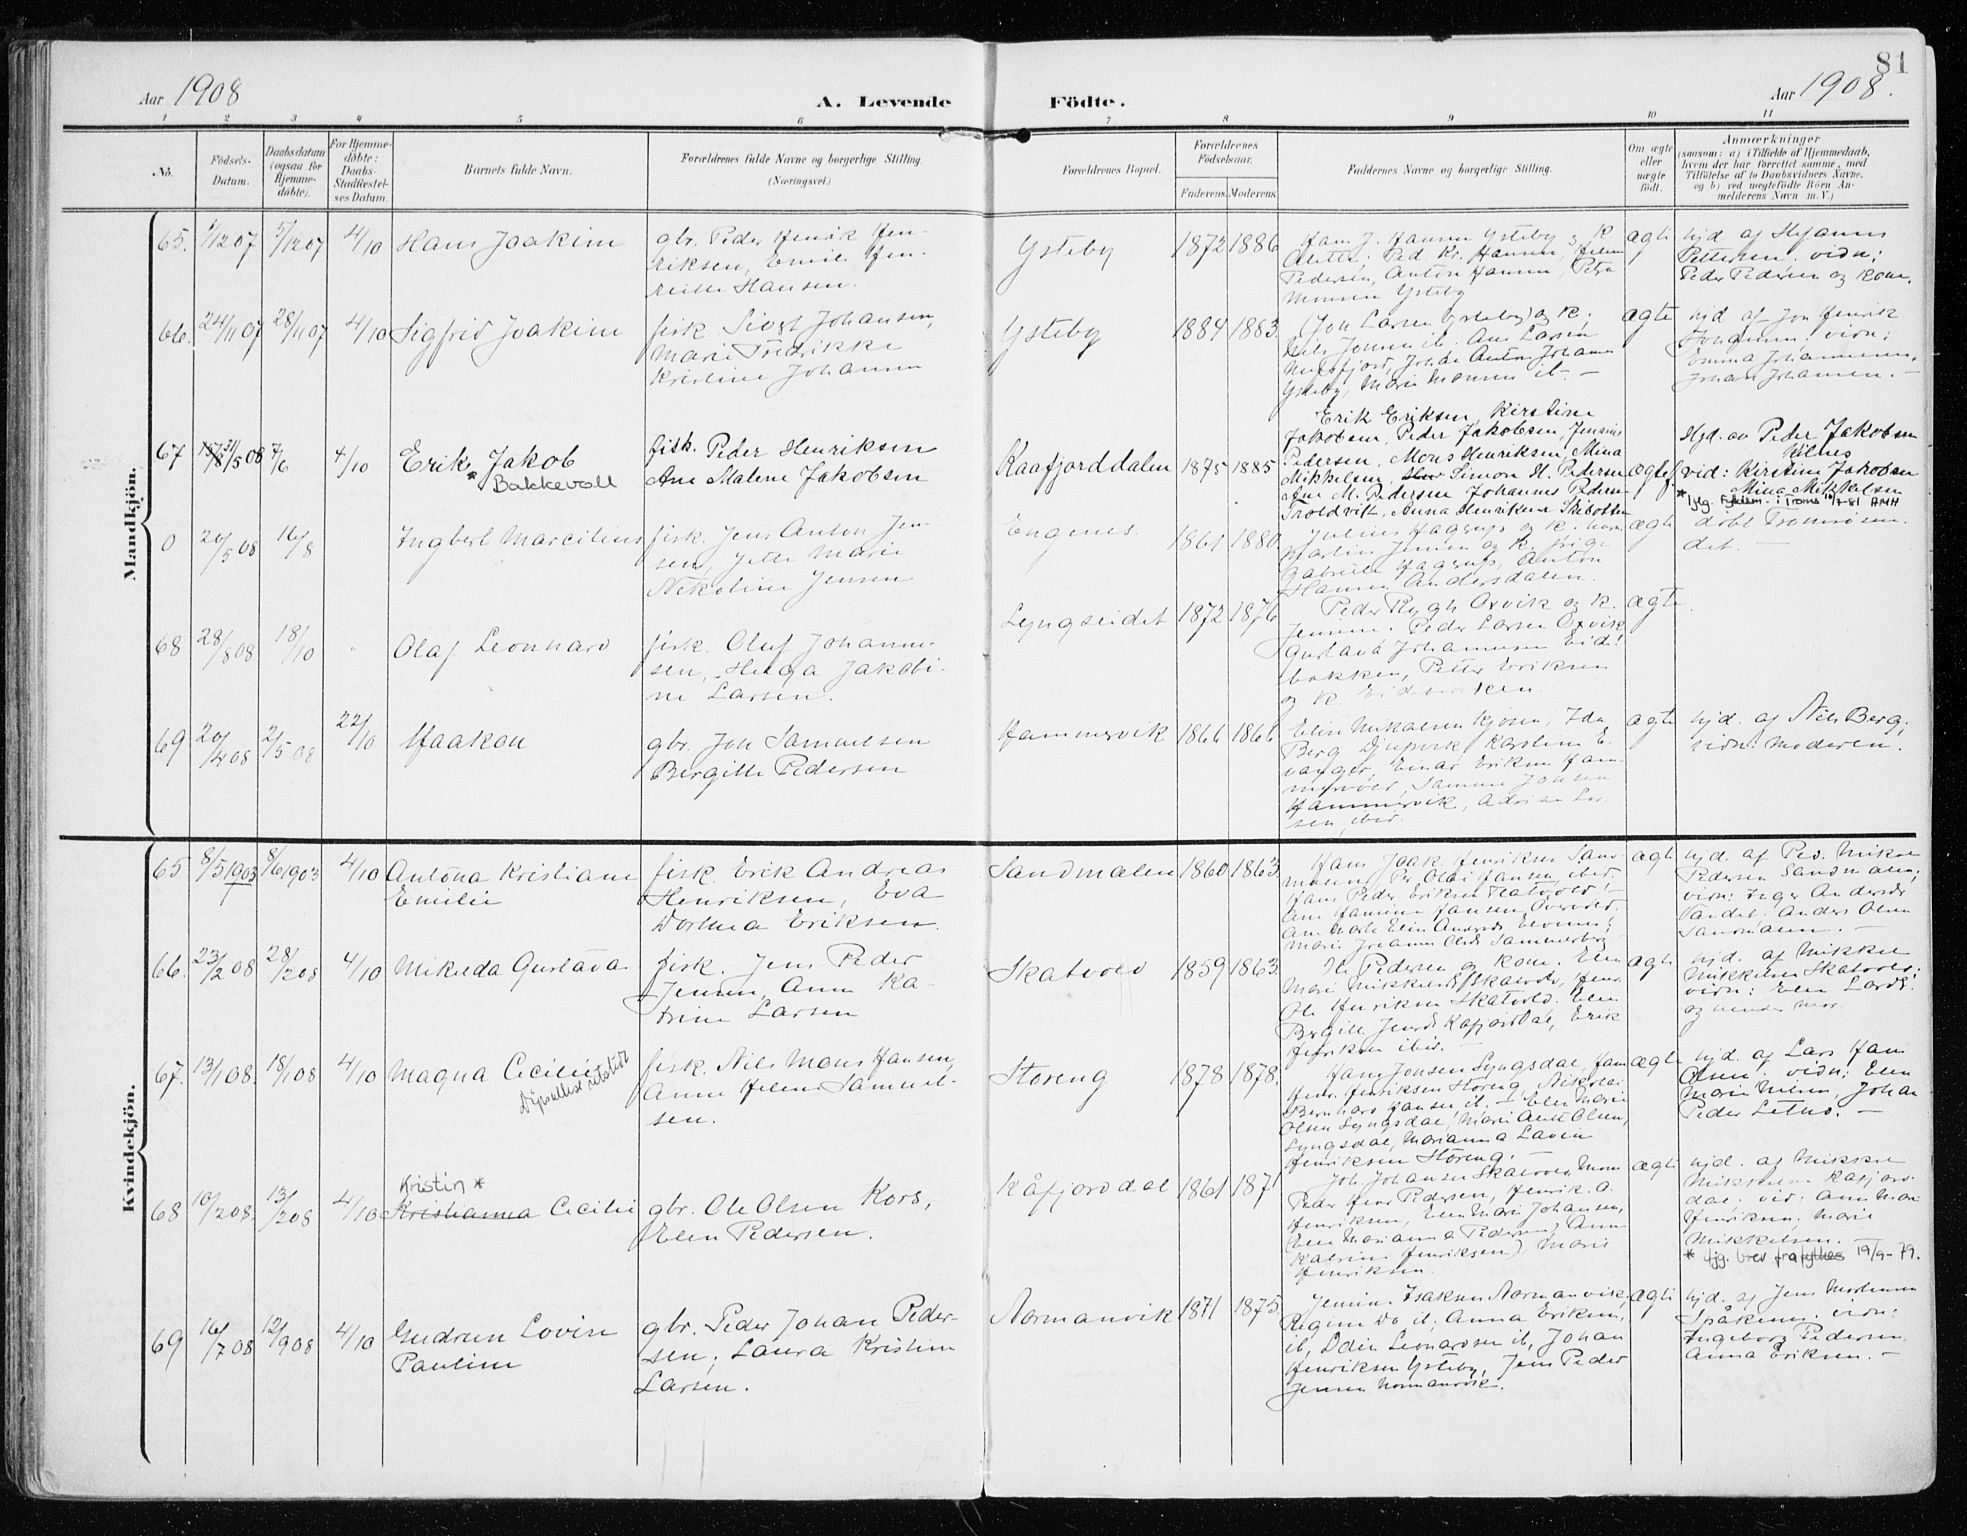 81
Aar 1908
A. Levende Födte.
Aar 1908.
1 2 3 4 5 6 7 8 9 10 11
No.
Födsels-
Datum.
Daabsdatum
(ogsaa for
Hjemme-
döbte).
For Hjemme-
döbte:
Daabs-
Stadfæstel-
ses Datum.
Barnets fulde Navn.
Forældrenes fulde Navne og borgerlige Stilling.
(Næringsvei.)
Forældrenes Bopæl.
Forældrenes
Födselsaar.
Faderens. Moderens.
Faddernes Navne og borgerlige Stilling.
Om ægte
eller
uægte
födt.
Anmærkninger
(saasom: a) i Tilfælde af Hjemmedaab,
hvem der har forrettet samme, med
Tilföielse af to Daabsvidners Navne.
og b) ved uægtefödte Börn An-
melderens Navn m. V.)
Mandkjön.
65. 1/12 07 5/12 07 4/10 Hans Joakim
gbr. Peder Henrik Hen-
riksen, Emilie Hen-
riette Hansen.
Ysteby 1872 1886
Hans J. Hansen Ysteby og K.
Ped. Kr. Hansen, Helene
Pedersen, Anton Hansen, Petra
Monsen Ysteby
ægte
hjd. af
Pettersen. vidn:
Peder Pedersen og Kone.
66. 24/11 07 28/11 07 4/10 Sigfrid Joakim
fisk. Sivert Johansen,
Marie Fredrikke
Kristine Johansen
Ysteby 1884 1883.
(Jon Larsen Ysteby) og K.
Nils Jensen ib. Ane Larsen
Anton Johans
Ysteby, Marie Monsen ib.-
ægte
hjd. af Jon Henrik
Johansen. vidn:
Emma Johannesen,
Johan Johansen. -
67 31/5 08 7/6 4/10 Erik Jakob
* Bakkevoll
fisk. Peder Henriksen
Ane Malene Jakobsen
Kaafjorddalen 1875 1885
Erik Eriksen, Kirstine
Jakobsen, Peder Jakobsen, Jensine
Pedersen, Mons Henriksen, Mina
Mikkelsen, Simon H. Pedersen
Ane M. Pedersen Johannes Pedersen
Troldvik, Anna Henriksen Skibotten
ægtef
Hjd. av Peder Jakobsen
Kilnes
vid: Kirstine Jakobsen
Mina Mikkelsen
0 20/5 08 16/8 Ingbert Marcilius
fisk. Jens Anton Jen-
sen, Jette Marie
Nikoline Jensen
Engenes. 1861 1880
Julius Hagerup og K.
Martin Jensen og K.
Gabriele Hagerup, Anton
Hansen Andersdalen.
ægte
döbt Tromsösun-
det. -
68 28/8 08 18/10 " Olaf Leonhard
fisk. Oluf Johanne-
sen, Helga Jakobi-
ne Larsen.
Lyngseidet 1872 1876
Peder Rygh Oxvik og K.
Jensine. Peder Larsen Oxvik
Gustava Johannesen Eide-
bakken, Petter Eriksen
og K. Eidebakken.
ægte.
69 20/4 08 2/5 08 22/10 Haakon
gbr. Jon Samuelsen
Bergitte Pedersen
Hammervik 1866 1866
Elen Mikalsen Kjosen, Ida
Berg Djupvik Karstine E-
vanger, Einar Eriksen Ham-
mervold, Samuel Johnsen
Hammervik, Adrian Lar-
sen, ibid.
ægte
hjd. af Nils Berg;
vidn: Moderen.
Kvindekjön.
65 8/5 1903 8/6 1903 4/10 Antona Kristiane
Emilie
fisk. Erik Andreas
Henriksen, Eva
Dorthea Eriksen.
Sandmælen 1860 1863.
Hans Joak. Henriksen Sand-
mælen, Per Olai Hansen ibid.
Hans Peder Eriksen Skatvold.
Ane Hansine Hansen Övervold.
ægte
hjd. af Ped. Mikal
Pedersen Sandmælen;
vidn: Inger Andersdt.
Vandet. Anders Olsen
Sandmælen. -
66. 23/2 08 28/2 08 4/10 Mikuda Gustava
fisk. Jens Peder
Jensen, Anne Ka-
trine Larsen
Skatvold 1859 1863.
Ole Pedersen og Kone. Elen
Marie Mikkelsdt Skatvold,
Ole Henriksen Skatvold. Elen
Bergitte Jensdt Kåfjorddal, Erik
Henriksen ibid. -
ægte
hjd. af Mikkel
Mikkelsen Skatvold;
vidn: Elen Larsdt.
og hendes Mor.
67. 13/1 08. 18/1 08 4/10 Magna Cecilie
fisk. Nils Mons Hansen,
Anne Helene Samuel-
sen.
Storeng 1878 1878.
Hans Jonsen Lyngsdal, Hans
Henr. Henriksen Storeng, Nikolai
Bernhard Hansen ib. - Elen Marie
Olsen Lyngsdal, Marie Anne Olsen,
Lyngsdal, Marianna Lavine
Henriksen Storeng. -
ægte
hjd. af Lars Hans
Olsen. vidn: Elen
Marie Nilsen, Johan
Peder -
68 10/2 08. 13/2 08 4/10 Kristin *
Kristianna Cecilie
gbr. Ole Olsen Kors,
Elen Pedersen.
Kåfjorddal 1861 1871
Joh. Johansen Skatvold, Mons
Peder Henr Pedersen, Henrik A.
Henriksen, Elen Marie Johansen,
(Elen Marianna Pedersen) Anne
Katrine Henriksen) Marie
Henriksen.
ægte
hjd. af Mikkel
Mikkelsen Kåfjord-
dal; vid: Ane Mari
Henriksen. Marie
Mikkelsen.
* flg. brev fra 19/9-79.
69 16/7 08 12/9 08 4/10 Gudrun Lovise
Pauline
gbr. Peder Johan Peder-
sen; Laura Kristine
Larsen.
Normanvik 1871 1875.
Jensine Isaksen Normanvik,
Regine Do ib; Anna Eriksen,
ib, Odin Leonardsen ib, Johan
Henriksen Ysteby, Jens Peder
Jensen Normanvik.
ægte
hjd. af Jens Mortensen
Spåkenes. vidn:
Ingeborg Pedersen
Anna Eriksen. -